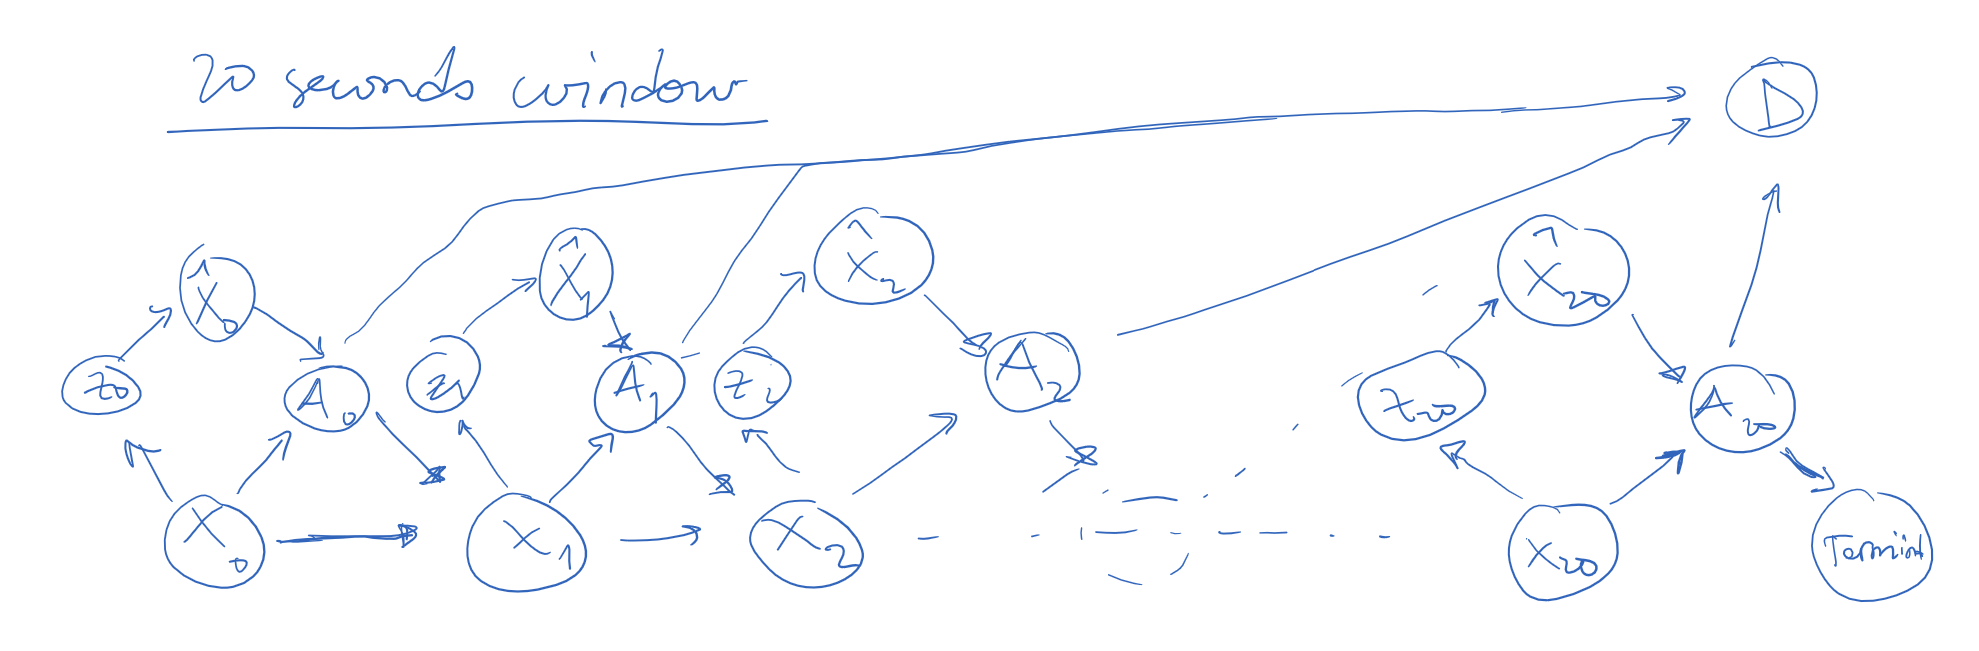 20 seconds window
D
X̂0
X̂1
X̂2
X̂20
Z0
A0
Z1
A1
Z2
A2
Z20
A20
X0
X1
X2
X20